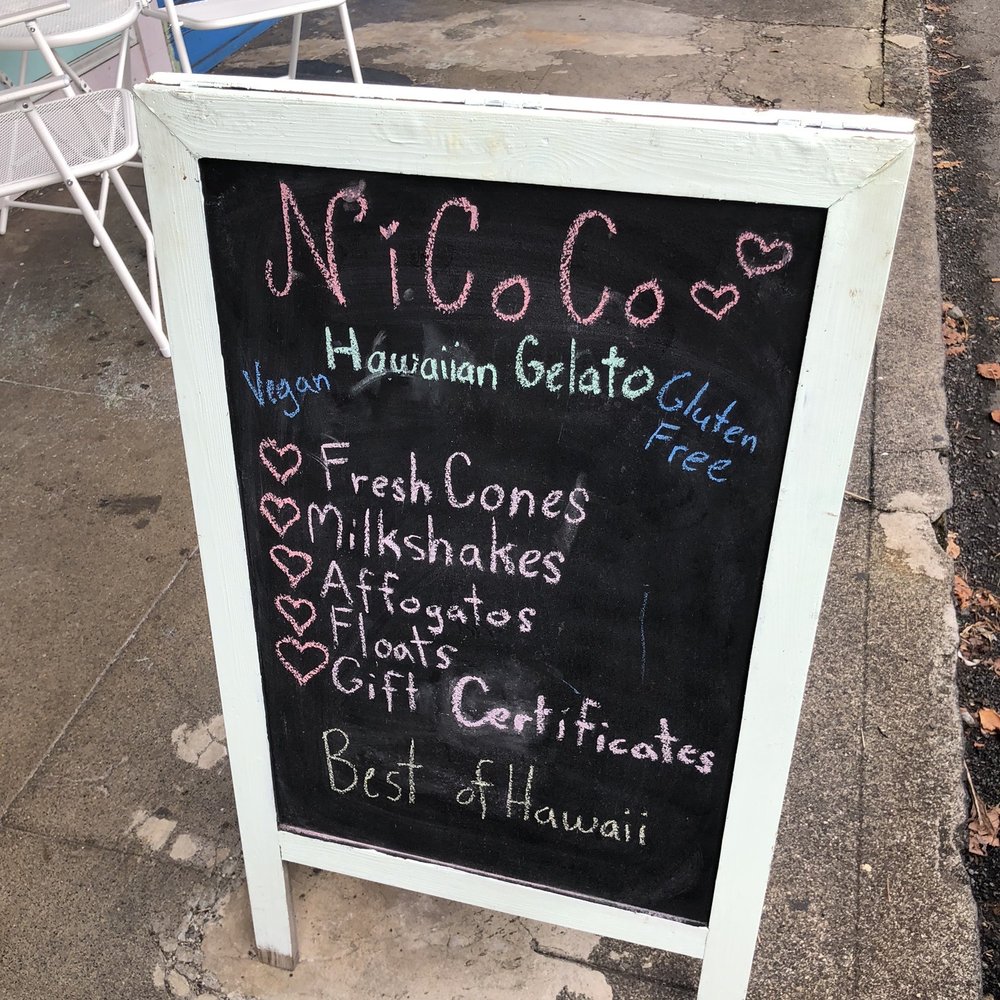 NiCoCo
Hawaiian Gelato
Vegan
Gluten
Free
Fresh Cones
Milkshakes
Affogatos
Floats
Gift Certificates
Best of Hawaii